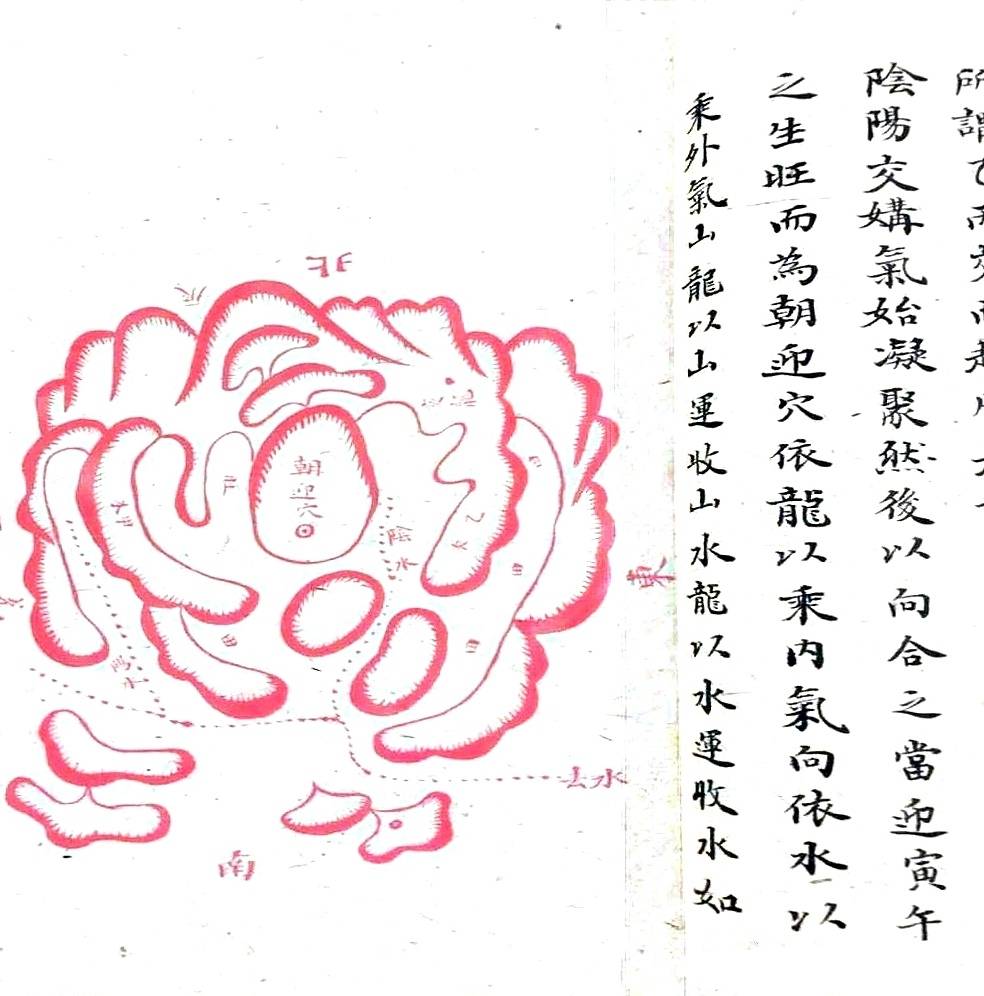 所謂
陰陽交媾氣始凝聚然後以向合之當迎寅午
之生旺而為朝迎穴依龍以乘內氣向依水以
乘外氣山龍以山運收山水龍以水運收水如
北
朝
迎
穴
陰水
東
陽水
去水
南